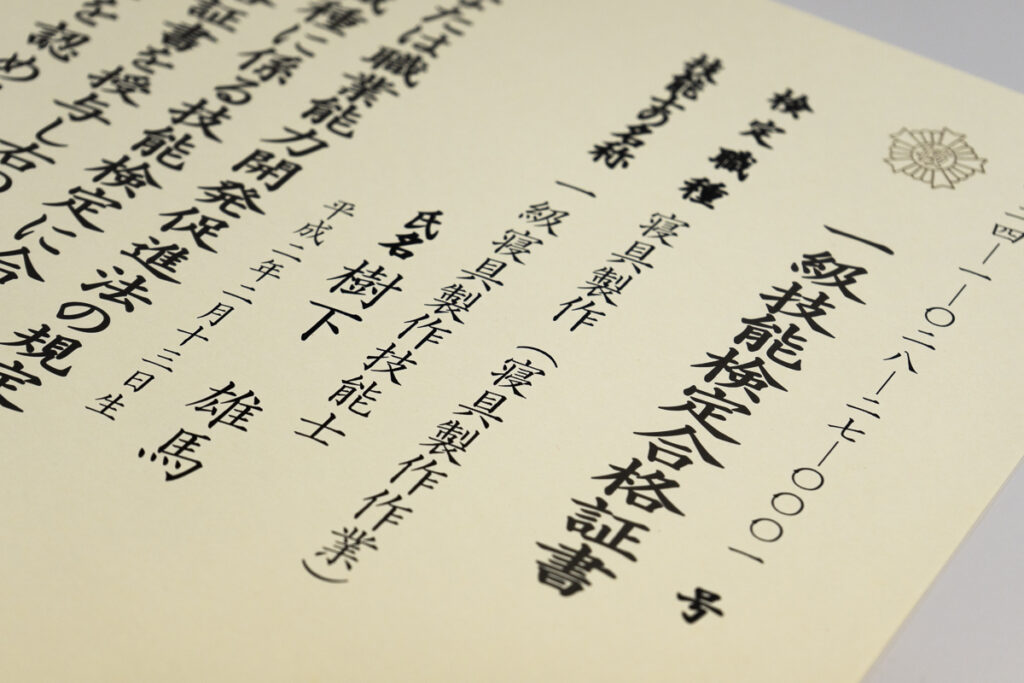 二四―一―〇二八―二七―〇〇〇一号
一級技能検定合格証書
検定職種 寝具製作（寝具製作作業）
技能士の名称 一級寝具製作技能士
氏名 樹下 雄馬
平成二年二月十三日生
たは職業能力開発促進法の規定
種に係る技能検定に合
証書を授与し右の
を認め